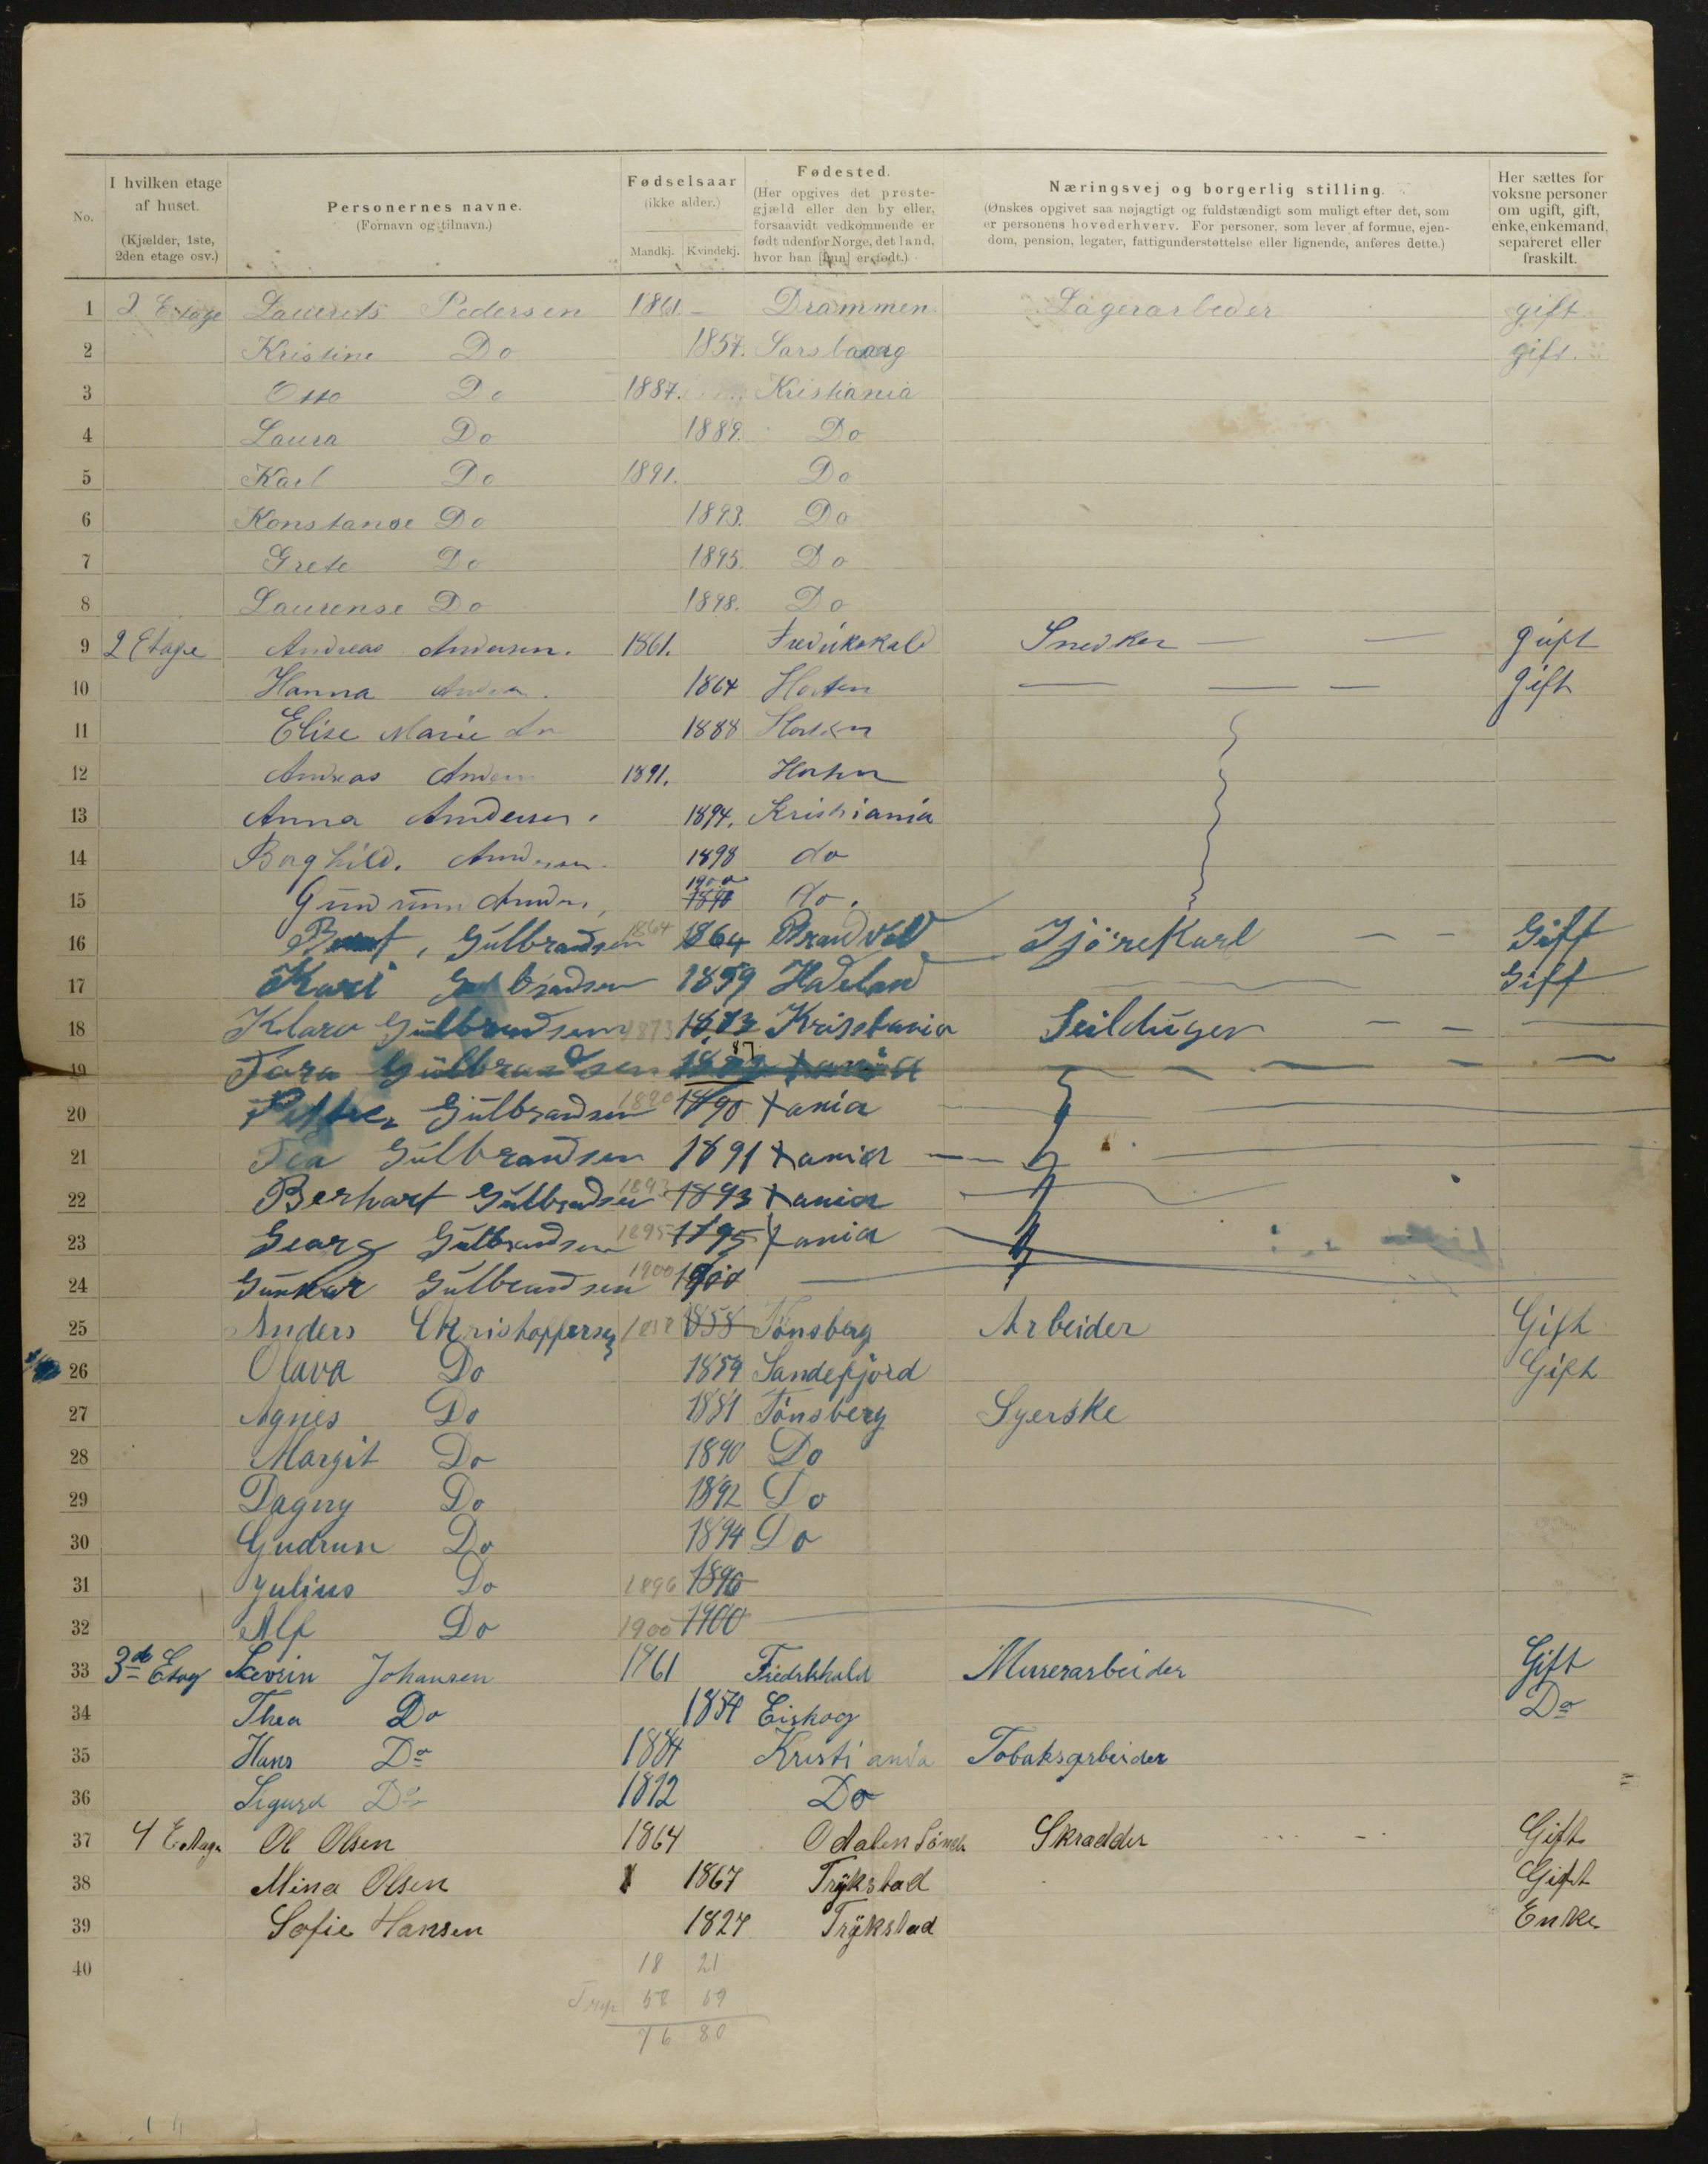 No. I hvilken etage af huset. (Kjælder, 1ste, 2den etage osv.) Personernes navne. (Fornavn og tilnavn.) Fødselsaar (ikke alder.) Mandkj. Kvindekj. Fødested. (Her opgives det prestegjæld eller den by eller, forsaavidt vedkommende er født udenfor Norge, det land, hvor han [hun] er født.) Næringsvej og borgerlig stilling. (Ønskes opgivet saa nøjagtigt og fuldstændigt som muligt efter det, som er personens hovederhverv. For personer, som lever af formue, ejendom, pension, legater, fattigunderstøttelse eller lignende, anføres dette.) Her sættes for voksne personer om ugift, gift, enke, enkemand, separeret eller fraskilt.
1 2 Etage Laurits Pedersen 1861. - Drammen Lagerarbeder gift
2 Kristine Do 1857. gift.
3 Otto Do 1887. Kristiania
4 Laura Do 1889. Do
5 Karl Do 1891. Do
6 Konstanse Do 1893. Do
7 Grete Do 1895. Do
8 Laurense Do 1898. Do
9 2 Etage Andreas Andersen. 1861. Fredrikshald Snedker — — gift
10 Hanna 1864 Horten — — — gift
11 Elise Marie do 1888 Horten
12 Andreas 1891. Horten
13 Anna Andersen. 1894. Kristiania
14 Borghild. Andersen 1898 do
15 1900 1890 do.
16 Gulbrandsen 1864 1864 Brandvold Gift
17 Kari Gulbrandsen 1859 Hadeland Gift
18 Klara Gulbrandsen 1873 1873 Kristiania — — —
19 Gulbrandsen 87 — — — —
20 Gulbrandsen 1890 1890 Xania
21 Gulbrandsen 1891 Xania —
22 Berhart Gulbrandsen 1893 1893 Xania
23 Georg Gulbrandsen 1895 1895 Xania
24 Gunvar Gulbrandsen 1900 1900
25 Anders Christoffersen 1858 1858 Tønsberg Arbeider Gift
26 Olava Do 1859 Sandefjord Gift
27 Agnes Do 1881 Tønsberg Syerske
28 Margit Do 1890 Do
29 Dagny Do 1892 Do
30 Gudrun Do 1894 Do
31 Julius Do 1896 1896
32 Alf Do 1900 1900
33 3de Etag Severin Johansen 1861 Fredrkhald Murerarbeider Gift
34 Thea Do 1854 Eiskog Do
35 Hans Do 1884 Kristiania Tobaksarbeider
36 Sigurd Do 1892 Do
37 4 Etage Ol Olsen 1864 Odalen Søndr Skradder Gift
38 Mina Olsen 1867 Trykstad Gift
39 Sofie Hansen 1827 Trykstad Enke
40 18 21
58 59
76 80